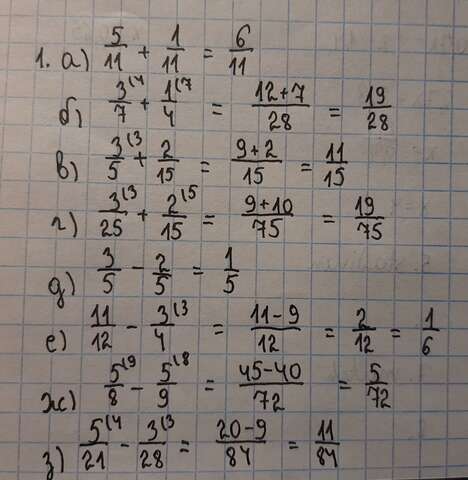 1. а) 5/11 + 1/11 = 6/11
б) 3⁽⁴/7 + 1⁽⁷/4 = 12+7/28 = 19/28
в) 3⁽³/5 + 2/15 = 9+2/15 = 11/15
г) 3⁽³/25 + 2⁽⁵/15 = 9+10/75 = 19/75
д) 3/5 - 2/5 = 1/5
е) 11/12 - 3⁽³/4 = 11-9/12 = 2/12 = 1/6
ж) 5⁽⁹/8 - 5⁽⁸/9 = 45-40/72 = 5/72
з) 5⁽⁴/21 - 3⁽³/28 = 20-9/84 = 11/84